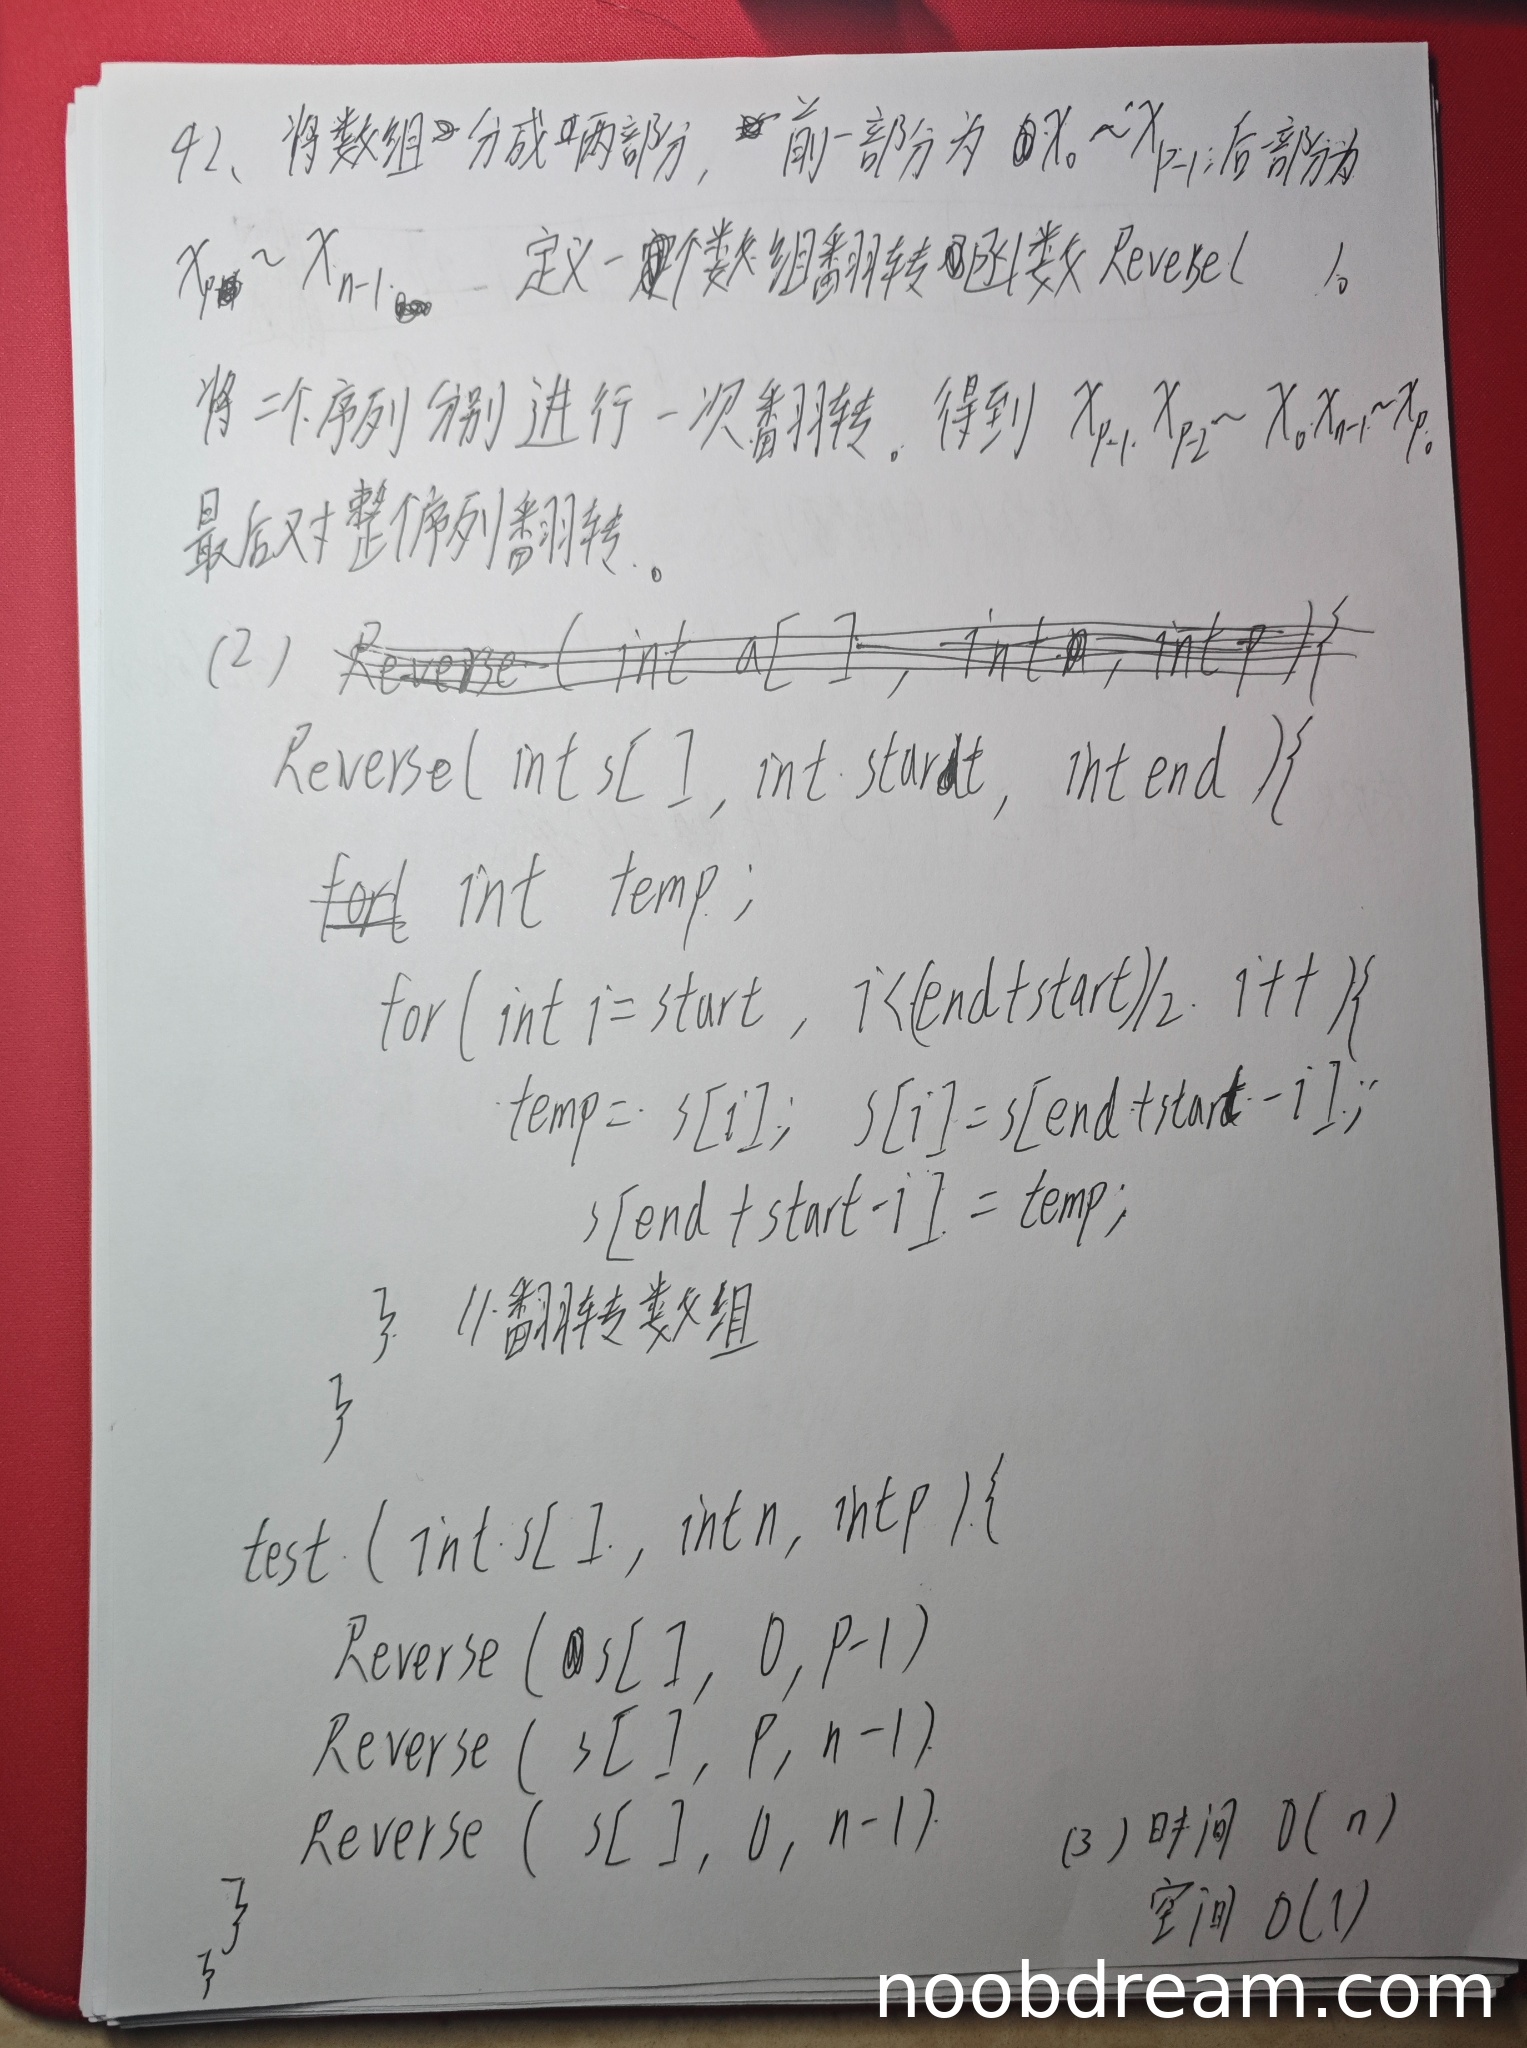 42、将数组分成两部分，前一部分为 X₀~Xₚ₋₁；后部分为
Xₚ ~ Xₙ₋₁。 定义一个数组翻转函数Reverse( )。
将二个序列分别进行一次翻转。得到 Xₚ₋₁ Xₚ₋₂~ X₀ Xₙ₋₁~Xₚ。
最后对整个序列翻转。
(2) Reverse ( int a[ ] , int n , int p ){
Reverse( int s[ ] , int start, int end ){
for( int temp ;
for( int i= start , i<(end+start)/2. i++ ){
temp= s[i]; s[i]=s[end+start-i];
s[end+start-i] = temp;
} //翻转数组
}
test ( int s[ ] , int n, int p ){
Reverse ( s[ ], 0, p-1)
Reverse ( s[ ], p, n-1)
Reverse ( s[ ], 0, n-1)
(3) 时间 O(n)
空间 O(1)
}
}
noobdream.com